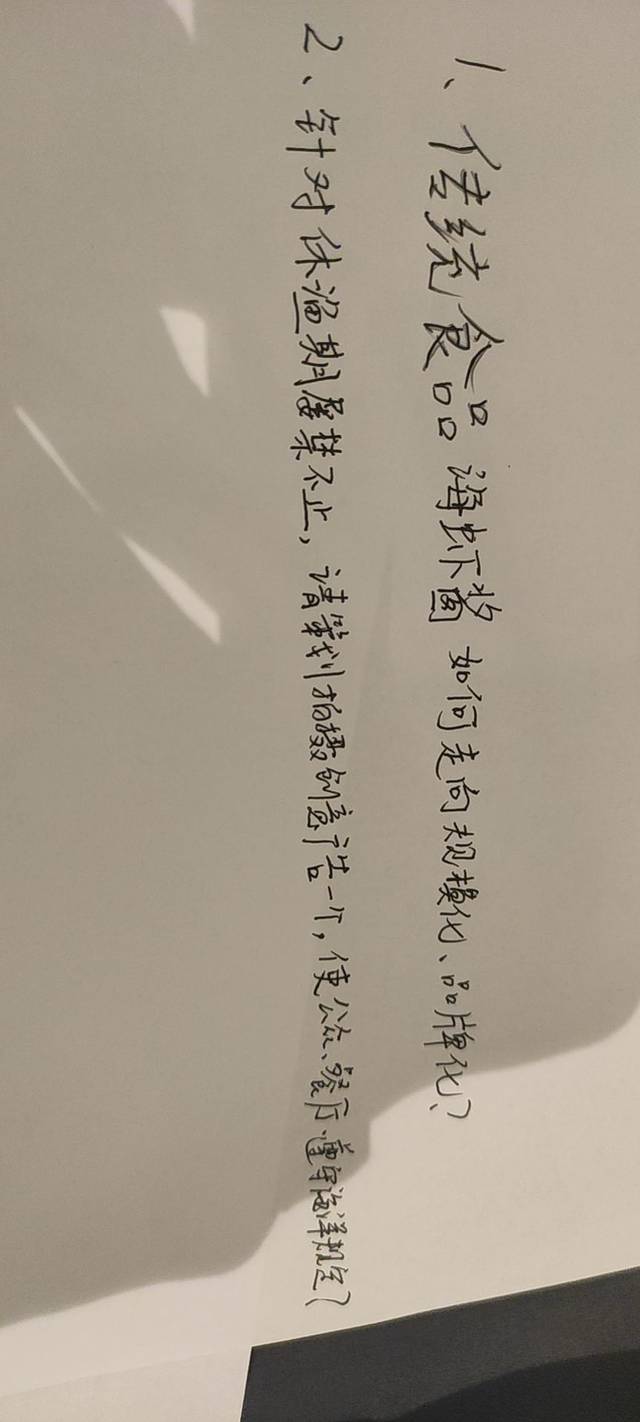 1、传统食品海虾酱如何走向规模化、品牌化?
2、针对休渔期屡禁不止,请策划拍摄创意广告一个,使公众、餐厅遵守海洋规定?